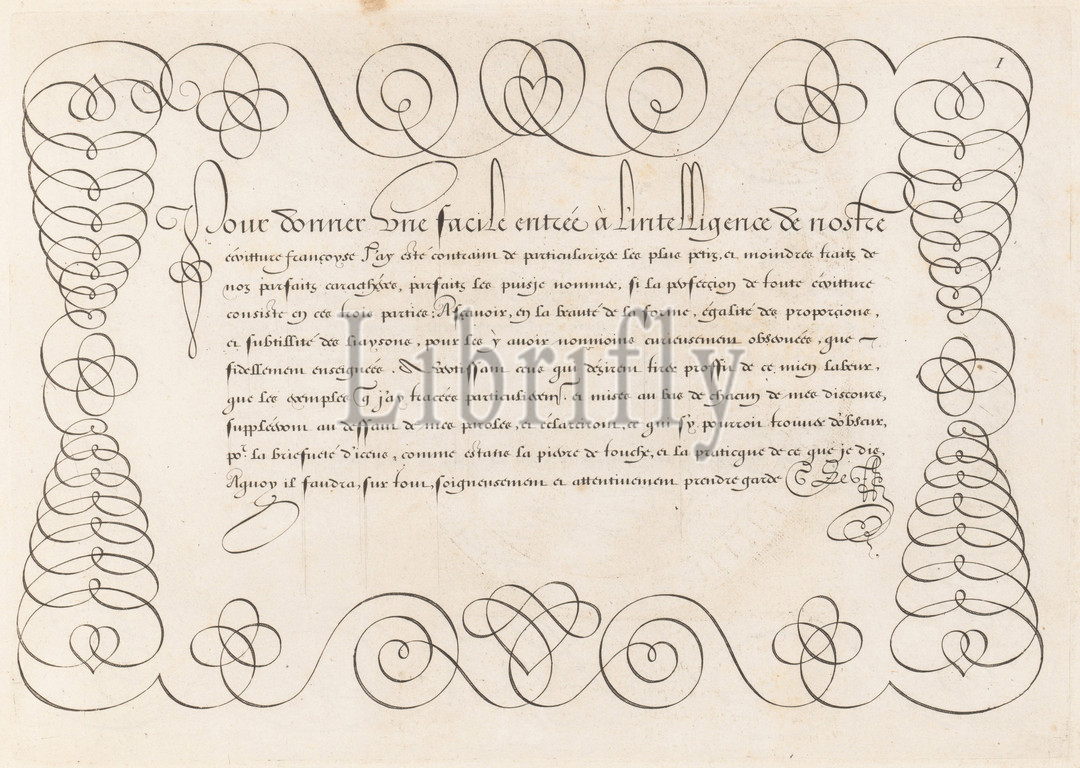 1
Pour donner vne facile entrée à l'intelligence de nostre
escritture françoyse J'ay esté contraint de particularizer les plus petiz, et moindres traitz de
noz parfaitz caractheres, parfaitz les puisje nommer, si la perfection de toute escritture
consiste en ces trois parties: Asçauoir, en la beauté de la forme, égalité des proporcions,
et subtillité des liaysons, pour les y auoir nonmoins curieusement obseruées, que
fidellement enseignées. Auertissant ceus qui dezirent tirer proffit de ce mien labeur,
que les exemples q j'ay tracées particulierem.t et mises au bas de chacun de mes discours,
suppléeront au deffaut de mes paroles, et éclarciront, ce qui s'y pourroit trouuer d'obscur,
po.r la briefueté d'iceus, comme estans la pierre de touche, et la praticque de ce que je dis,
Aquoy il faudra, sur tout, soigneusement et attentiuement prendre garde
Librifly